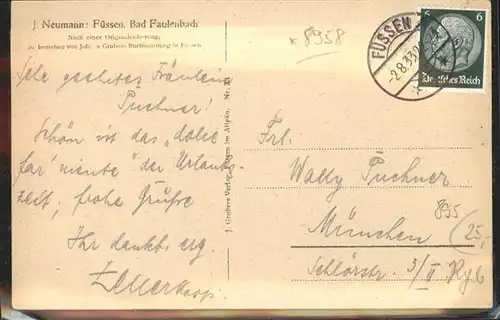 J. Neumann: Füssen, Bad Faulenbach
Nach einer Originalradierung,
zu beziehen von Joh. n Grubers Buchhandlung in Füssen
*8958
FÜSSEN
-2.8.39
6
Deutsches Reich
Sehr geehrtes Fräulein
Püchner!
Schön ist das "dolce
far niente" der Urlaubs-
zeit, frohe Grüße
Ihr dankb. erg.
J. Grubers Verlag, Füssen im Allgäu. Nr.
Frl.
Wally Püchner
München
Schlörstr. 3/II
895
(25,